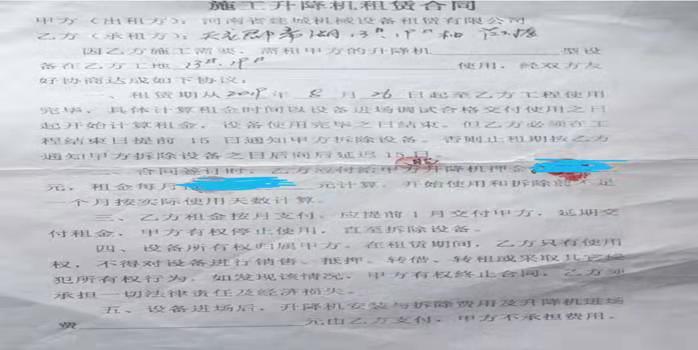 施工升降机租赁合同
甲方（出租方）：河南省建城机械设备租赁有限公司
乙方（承租方）：
因乙方施工需要，需租甲方的升降机 型设
备在乙方工地 13#，19# 使用，经双方友
好协商达成如下协议：
一、租赁期从2019年 8 月 26 日起至乙方工程使用
完毕，具体计算租金时间以设备进场调试合格交付使用之日
起开始计算租金，设备使用完毕之日结束。但乙方必须在工
程结束日提前 15 日通知甲方拆除设备，否则止租期按乙方
通知甲方拆除设备之日后向后延迟 15 日。
二、合同签订时，乙方应付给甲方升降机押金
元，租金每月 元计算，开始使用和拆除前不足
一个月按实际使用天数计算。
三、乙方租金按月支付，应提前 1 月交付甲方，延期交
付租金，甲方有权停止使用，直至拆除设备。
四、设备所有权归属甲方，在租赁期间，乙方只有使用
权，不得对设备进行销售、抵押、转借、转租或采取其它侵
犯所有权行为，如发现该情况，甲方有权终止合同，乙方须
承担一切法律责任及经济损失。
五、设备进场后，升降机安装与拆除费用及升降机进场
费 元由乙方支付，甲方不承担费用。